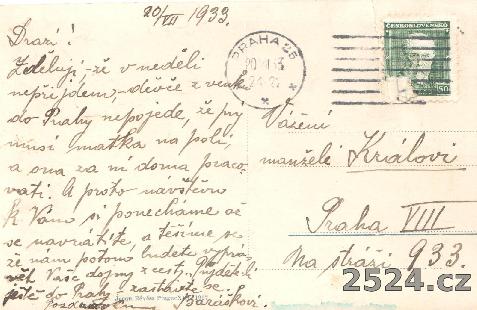 20/VII 1933.
Drazí!
Zděluji, že v neděli
nepřijdem, děvče z venku
do Prahy nepojede, že prý
musí matka na poli,
a ona za ní doma praco-
vati. A proto návštěvu
k Vám si ponecháme až
se navrátíte, a těšíme se
že nám potom budete vyprá-
věti Vaše dojmy z cesty. Půjdeteli
ještě do Prahy zastavte se.
Pozdrav Baráškovi.
PRAHA 25
ČESKOSLOVENSKO
50
Vážení
manželé Královi
Praha VIII
Na stráži 933.
2524.cz